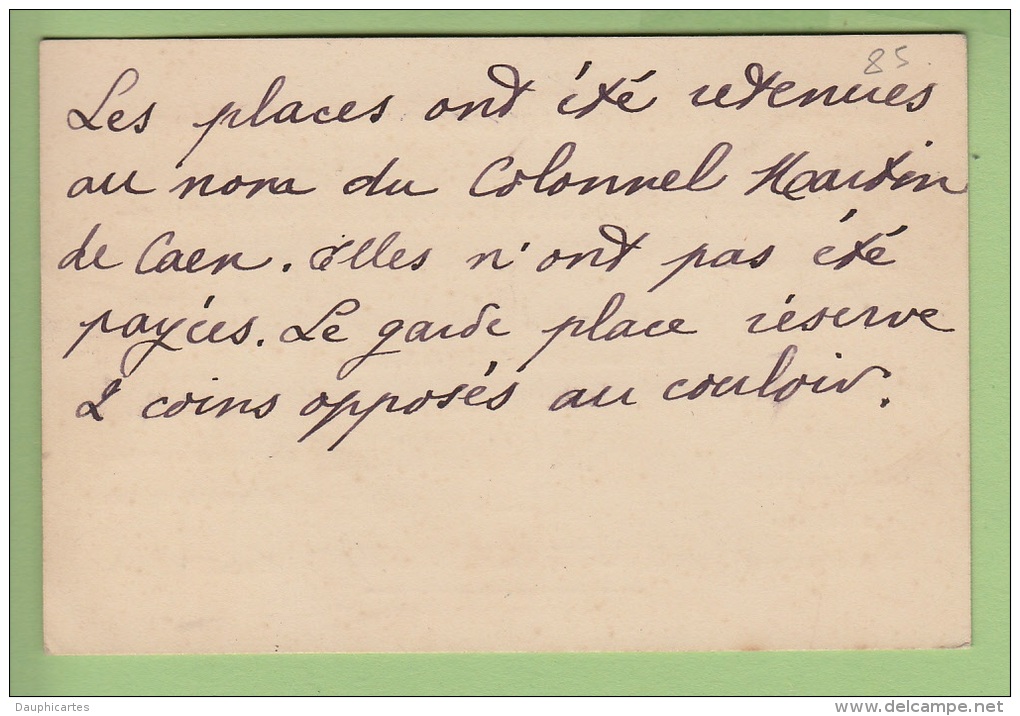 85
Les places ont été retenues
au nom du Colonnel Martin
de Caen. Elles n'ont pas été
payées. Le garde place réserve
2 coins opposés au couloir.
Dauphicartes
www.delcampe.net